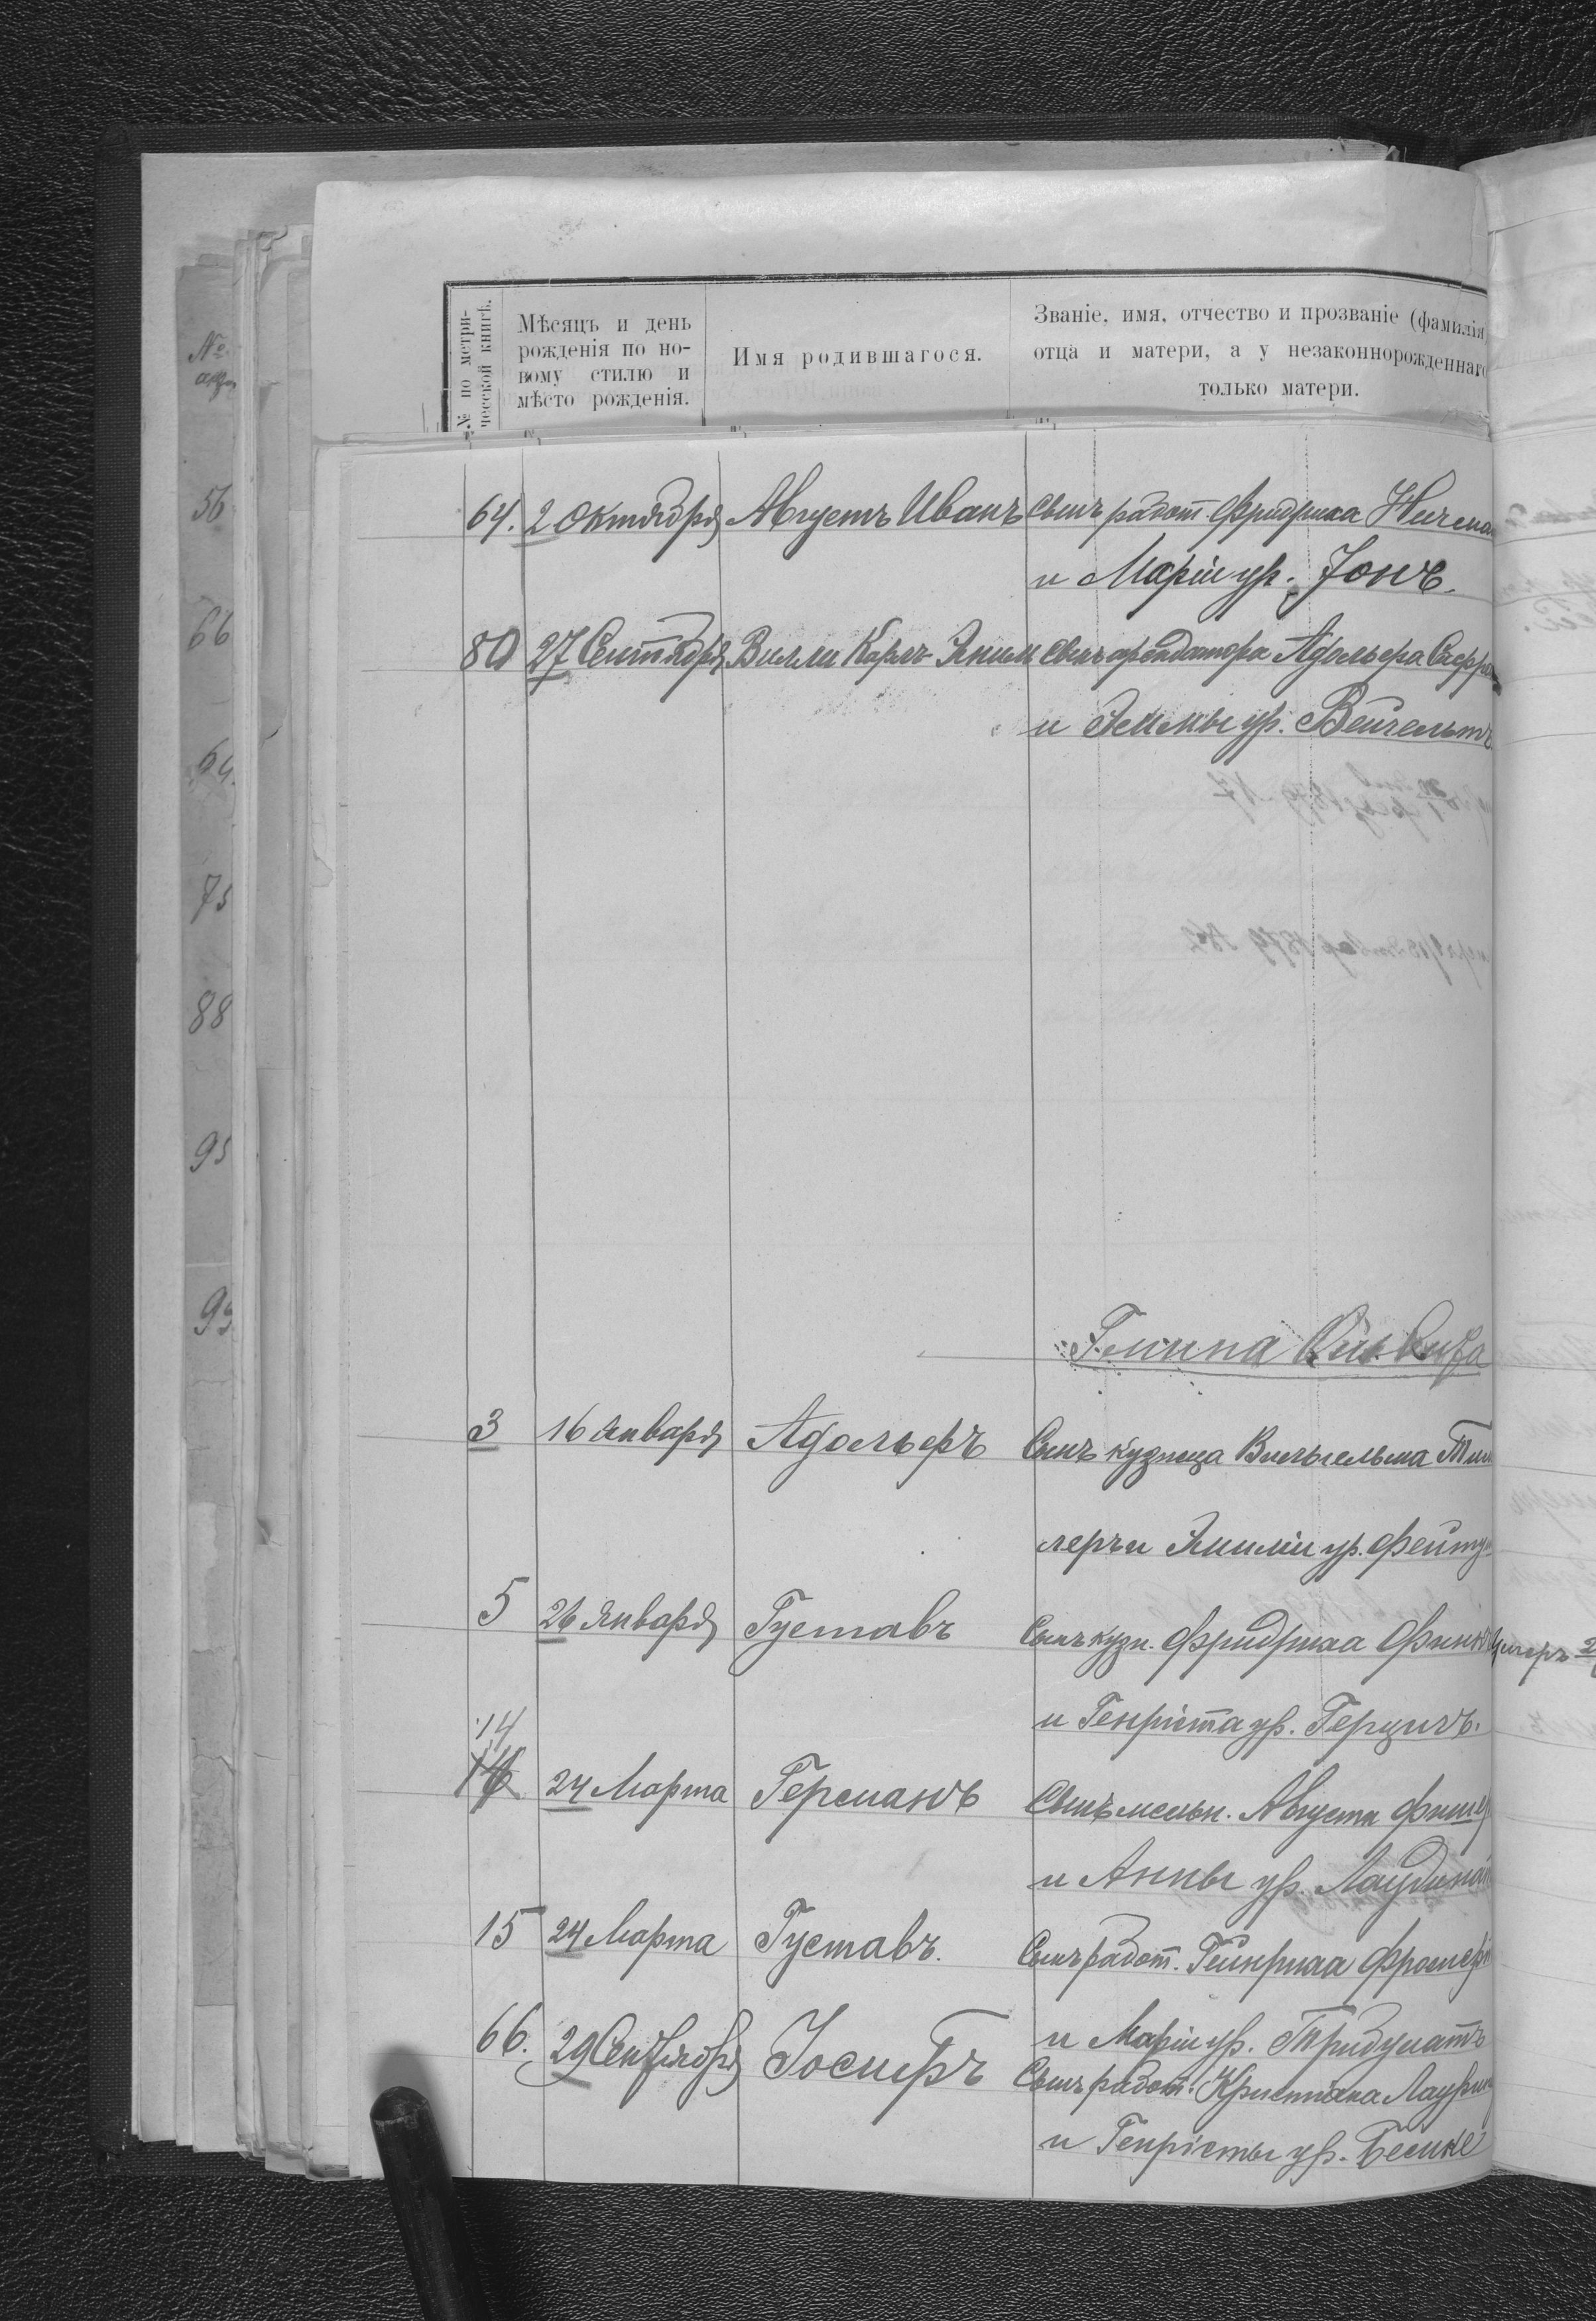 № по метри-
ческой книгѣ.
Мѣсяцъ и день
рожденія по но-
вому стилю и
мѣсто рожденія.
Имя родившагося.
Званіе, имя, отчество и прозваніе (фамилія
отца и матери, а у незаконнорожденнаго
только матери.
64. 2 Октября Августъ Иванъ Сынъ работ. Фридриха
и Маріи ур. Јонъ.
80 27 Сентября Вилли Карлъ Эмилъ Сынъ арендатора Адольфа
и Эммы ур. Вейгельтъ
Гмина
3 16 Января Адольфъ Сынъ кузнеца Вильгельма Тил
леръ и Эмиліи ур.
5 26 Января Густавъ Сынъ кузн. Фридриха Финк Умеръ 2
и Генріета ур. Герцигъ.
14
16 24 Марта Германъ Сынъ мельн. Августа Фишер
и Анны ур.
15 24 Марта Густавъ. Сынъ работ. Гейнриха
и Маріи ур.
66. 29 Сентября Јосифъ Сынъ работ. Христіана
и Генріеты ур. Бемке
№
56
66
64
75
88
95